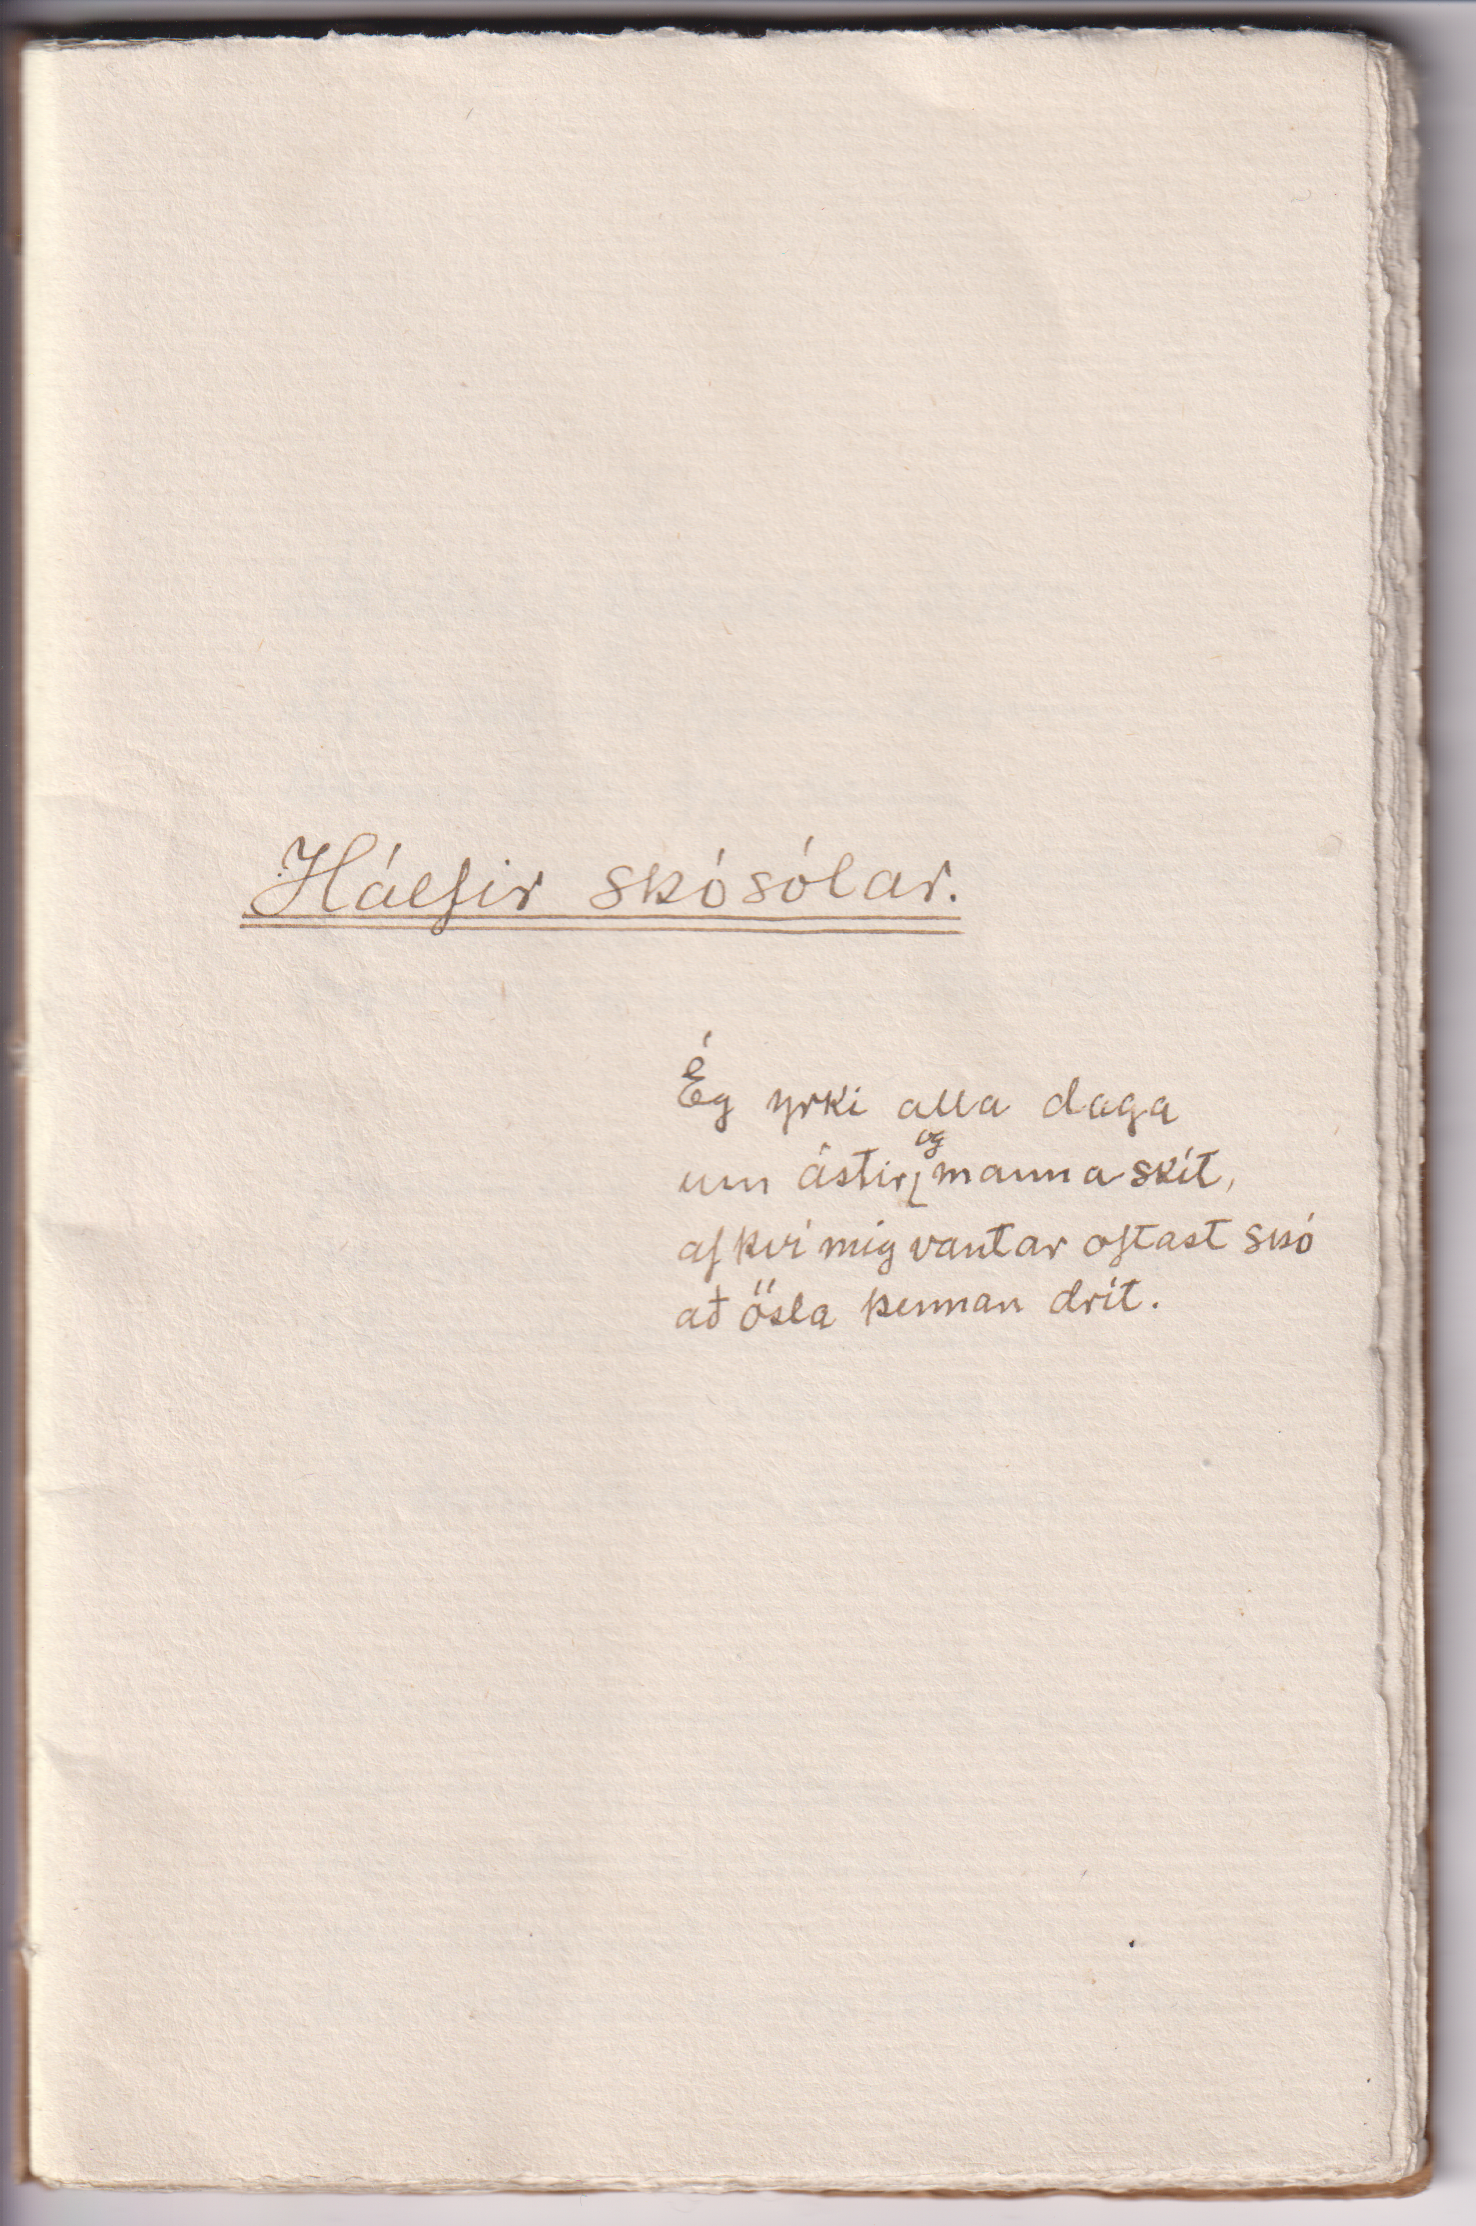 Hálfir skósólar.
Ég yrki alla daga
um ástir og manna skít,
af því mig vantar oftast skó
að ösla þennan drít.